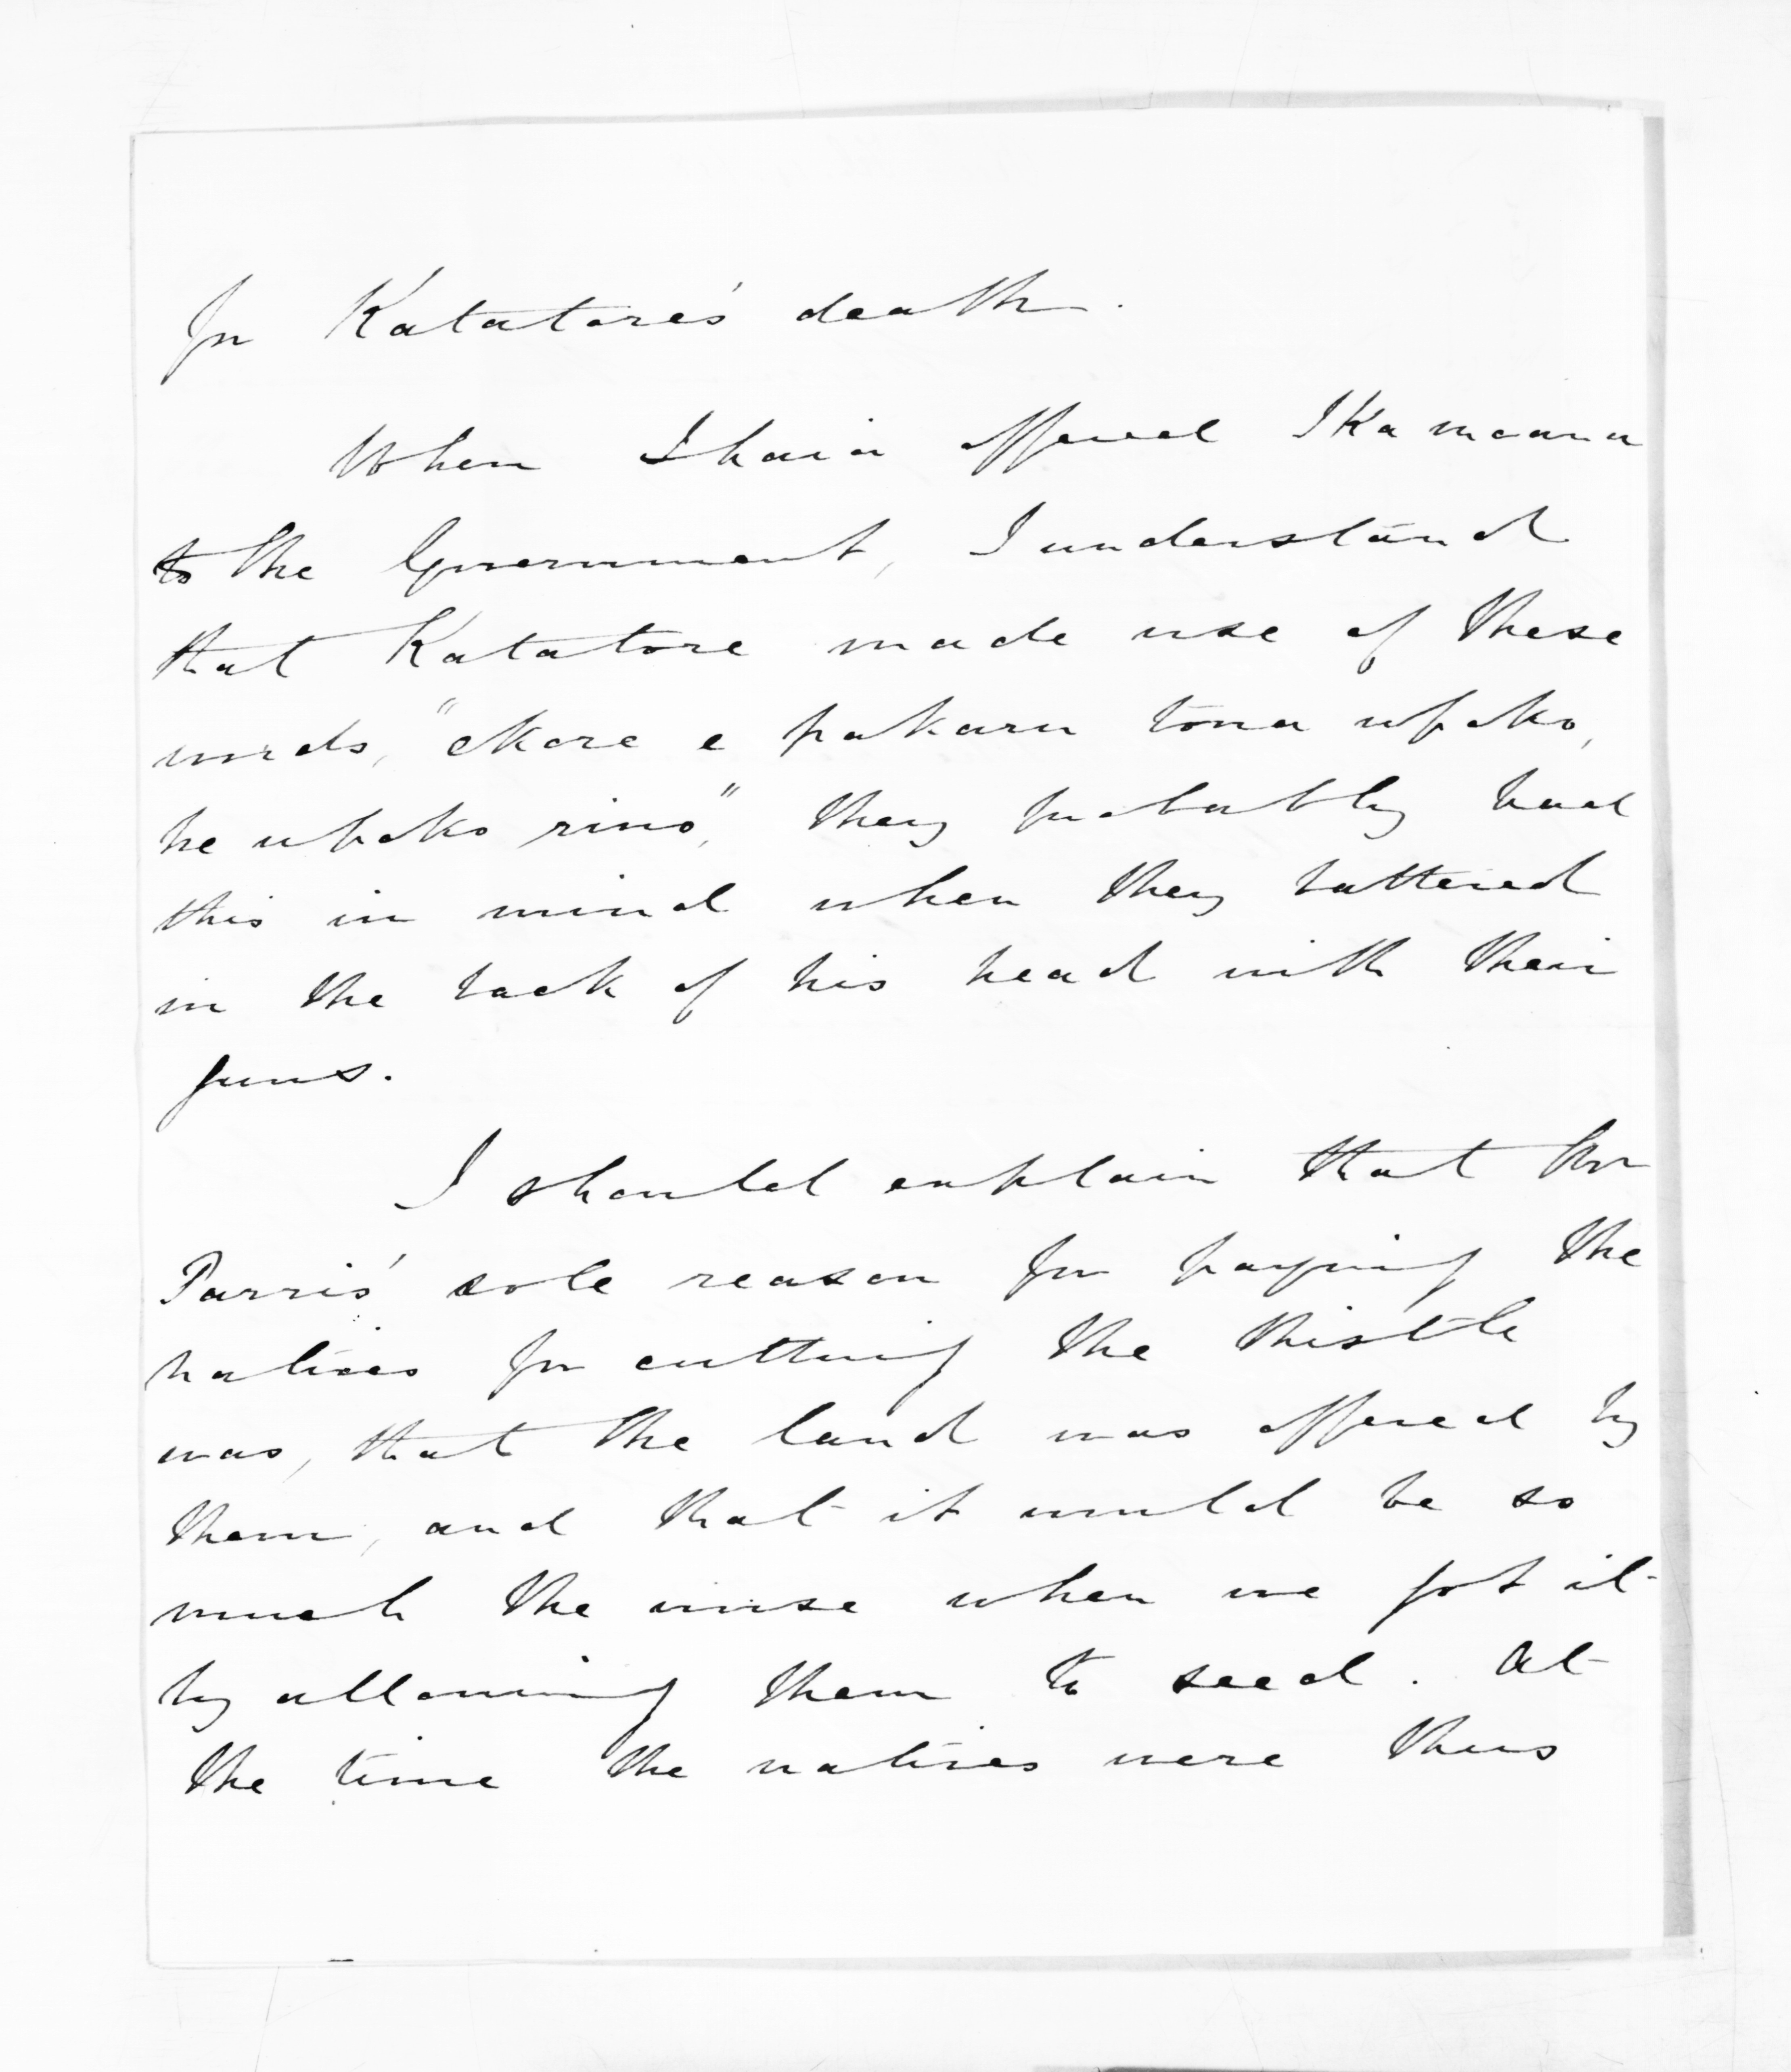 for Katatore's death.
When Ihaia offered Ikamoana
to the Government, I understand
that Katatore made use of these
words, "ekore e pakaru tona upoko,
he upoko rino," they probably had
this in mind when they battered
in the back of his head with their
guns.
I should explain that Mr
Parris' sole reason for paying the
natives for cutting the thistle
was, that the land was offered by
them, and that it would be so
much the worse when we got it
by allowing them to seed. At
the time the natives were thus